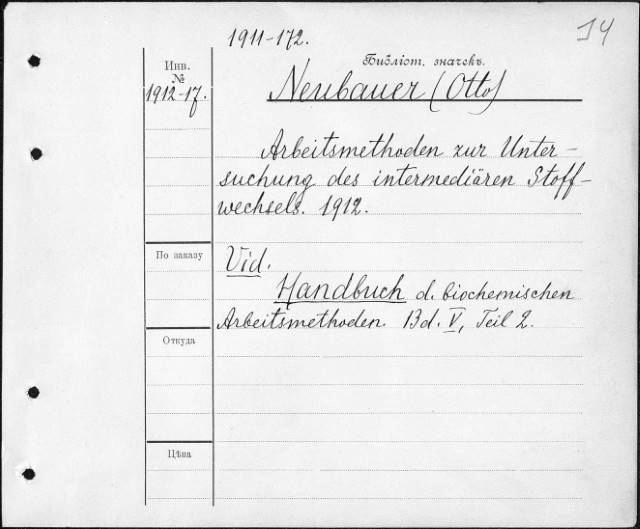 1911-172.
J4
Библіот. значекъ.
Инв.
№
1912-17.
Neubauer (Otto)
Arbeitsmethoden zur Unter-
suchung des intermediären Stoff-
wechsels. 1912.
По заказу
Vid.
Handbuch d. biochemischen
Arbeitsmethoden. Bd. V, Teil 2.
Откуда
Цѣна